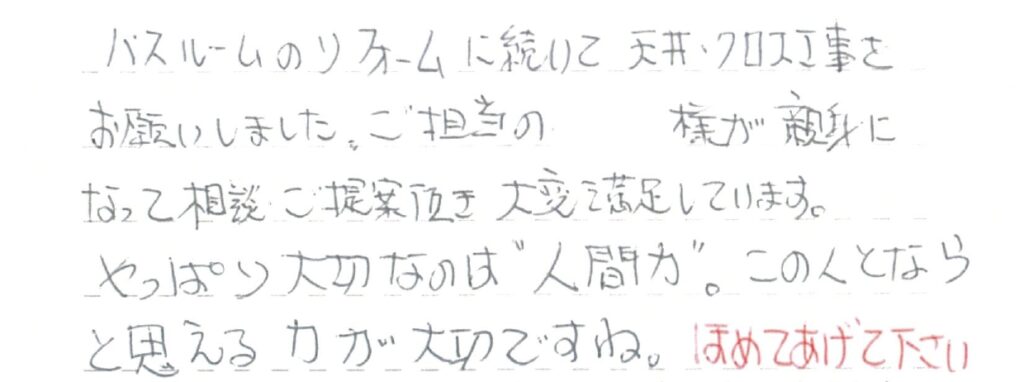 バスルームのリフォームに続いて 天井・クロス工事を
お願いしました。ご担当の 様が親身に
なって相談・ご提案頂き 大変満足しています。
やっぱり大切なのは"人間力"。この人となら
と思える力が大切ですね。ほめてあげて下さい